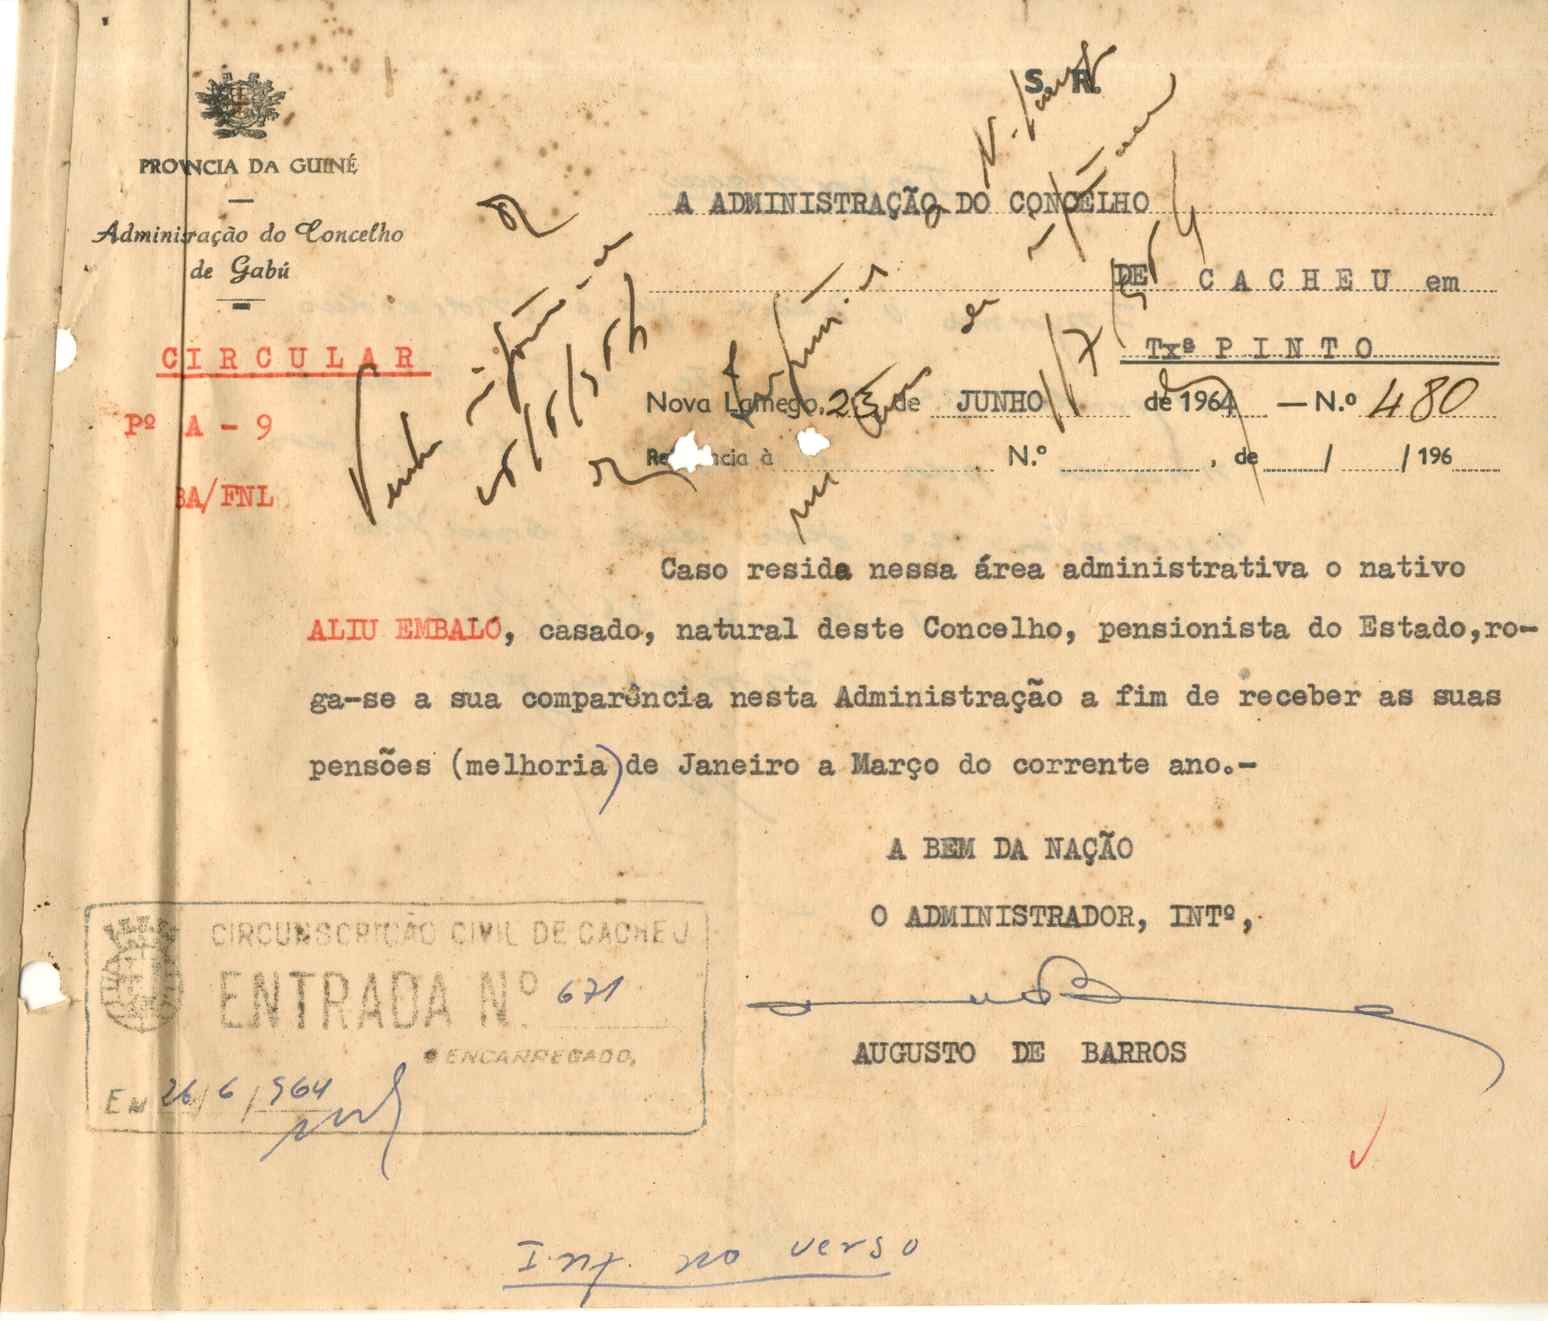 S. R.
PROVINCIA DA GUINÉ
Administração do Concelho
de Gabú
A ADMINISTRAÇÃO DO CONCELHO
DE C A C H E U em
Txª P I N T O
C I R C U L A R
Pº A - 9
BA/FNL
Nova Lamego, 23 de JUNHO de 1964 — N.º 480
Referência à N.º , de / /196
Caso resida nessa área administrativa o nativo
ALIU EMBALÓ, casado, natural deste Concelho, pensionista do Estado,ro-
ga-se a sua comparência nesta Administração a fim de receber as suas
pensões (melhoria)de Janeiro a Março do corrente ano.-
A BEM DA NAÇÃO
O ADMINISTRADOR, INTº,
AUGUSTO DE BARROS
CIRCUNSCRIÇÃO CIVIL DE CACHEU
ENTRADA Nº 671
O ENCARREGADO,
EM 26/6/964
Inf. no verso